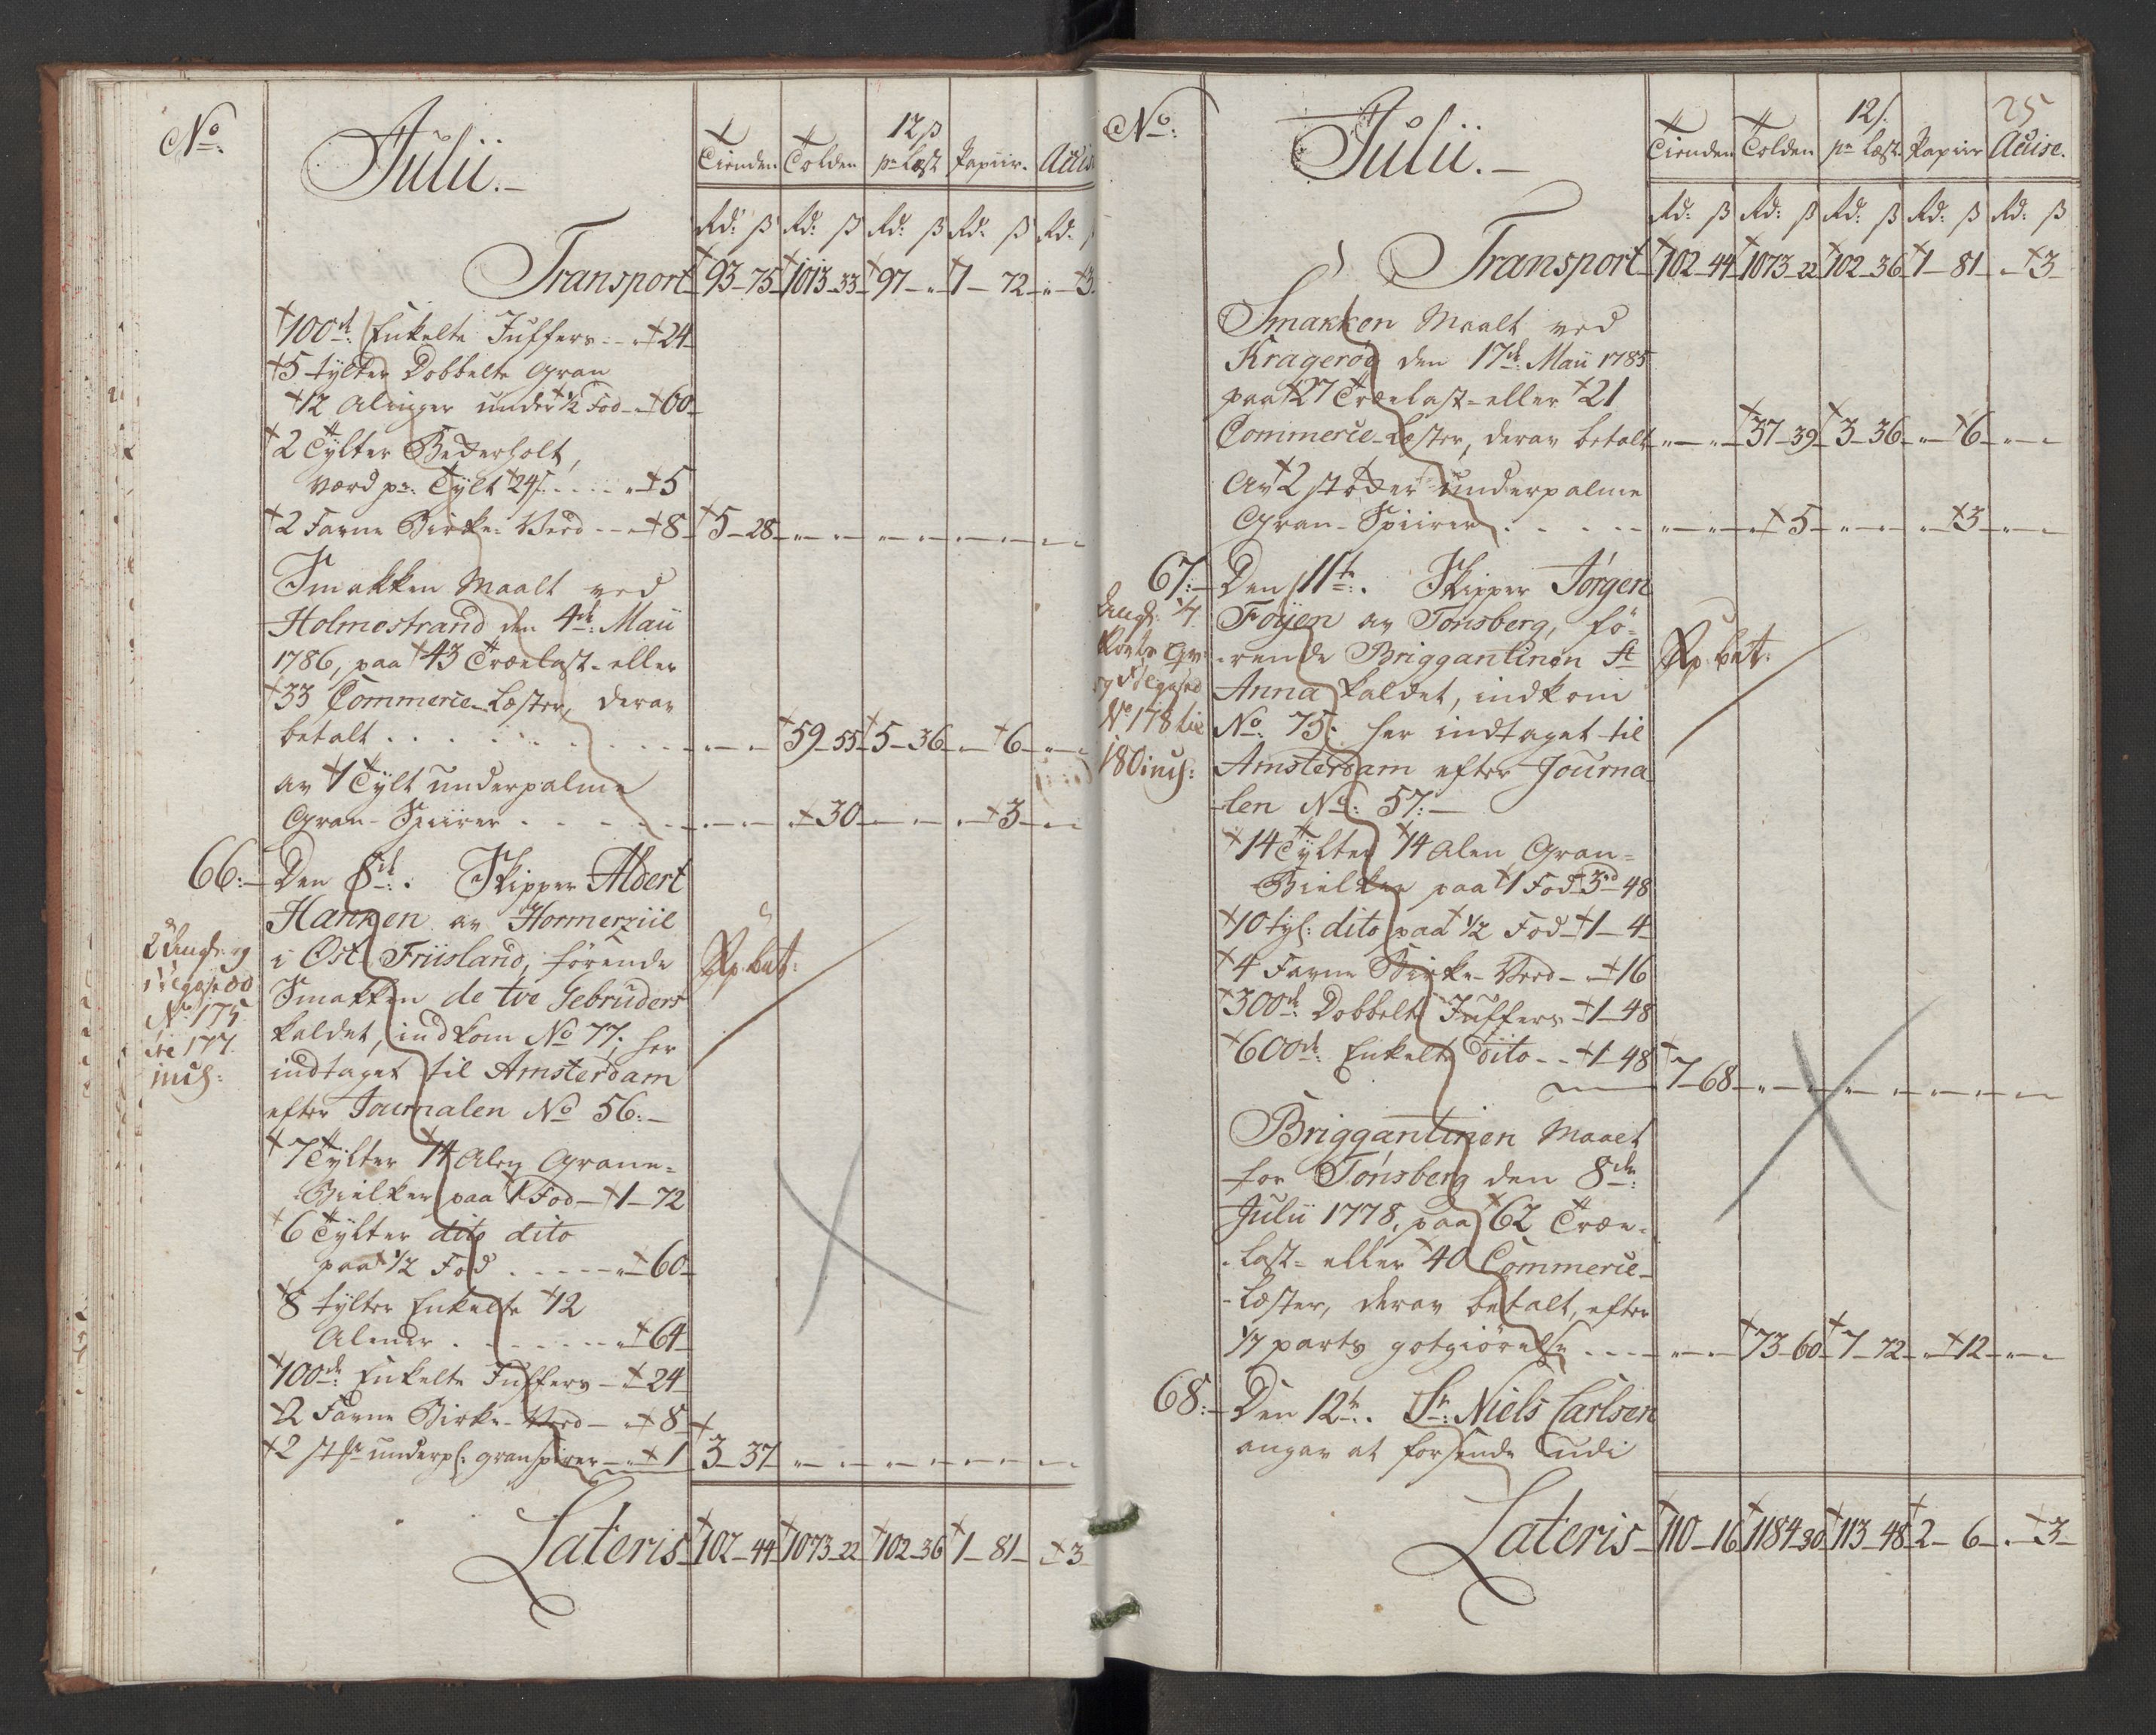 No:
Julii.
Tienden Tolden 12 ß pr Læst Papiir. Accise
Rd: ß Rd: ß Rd: ß Rd: ß Rd: ß
Transport 93-75 1013-33 97-" 1-72 "-3
100de: Enkelte Juffers - - " 24
5 tylter Dobbelte Gran
12 Alinger under 1/2 Fod - " 60
2 Tylter Bederholt,
værd pr: Tylt 24 ß . . . . " 5
2 Favne Birke-Veed - - " 8 5-28
Smakken Maalt ved
Holmestrand den 4de: Maii
1786, paa 43 Trælast- eller
33 Commerce-Læster, derav
betalt . . . . . . 59-55 5-36 " 6
av 1 Tylt underpalme
Gran-Spiirer . . . . " 30 " 3
66:- Den 8de:. Skipper Aldert
Hanken av Hormerziil
i Ost Friisland, förende
Smakken de tve Gebrüders
kaldet, indkom No 77: her
indtaget til Amsterdam
efter Journalen No 56:-
Rp: bet:
No 175
til 177
incl:
7 Tylter 14 Alen Grane-
Bielker paa 1 Fod - 1-72
6 Tylter dito dito
paa 1/2 Fod . . . . " 60
8 tylter Enkelte 12
Alender . . . . . " 64
100de: Enkelte Juffers - " 24
2 Favne Birke-Veed - " 8
2 st: underpl: granspirer - " 1 3-37
Lateris 102-44 1073-22 102-36 1-81 " 3
No:
Julii.
25
Tienden Tolden 12 ß. pr Læst. Papiir Accise.
Rd: ß Rd: ß Rd: ß Rd: ß Rd: ß
Transport 102-44 1073-22 102-36 1-81 " 3
Smakken Maalt ved
Kragerög den 17de: Maii 1785
paa 27 Trælast- eller 21
Commerce-Læster, derav betalt 37-39 3-36 " 6
Av 2 støder underpalme
Gran-Spiirer . . . . " 5 " 3
67:- Den 11te:. Skipper Jörgen
Föyen av Tönsberg, fö-
rende Briggantinen St
Anna kaldet, indkom
No: 75: her indtaget til
Amsterdam efter Journa-
len No: 57:-
Rp: bet:
No 178 til
180 incl:
14 Tylter 14 Alen Gran-
Bielker paa 1 Fod 3 rd 48
10 tyl: dito paa 1/2 Fod 1-4
4 Favne Birke-Veed - " 16
300de: Dobbelte Juffers 1-48
600de: Enkelte dito - - 1-48 7-68
Briggantinen Maalt
for Tönsberg den 8de:
Julii 1778, paa 62 Træ-
last- eller 40 Commerce-
Læster, derav betalt, efter
1/7 parts gotgiörelse . . . . 73-60 7-72 " 12
68:- Den 12te:. Sr: Niels Carlsen
angav at forsende udi
Lateris 110-16 1184-30 113-48 2-6 " 3